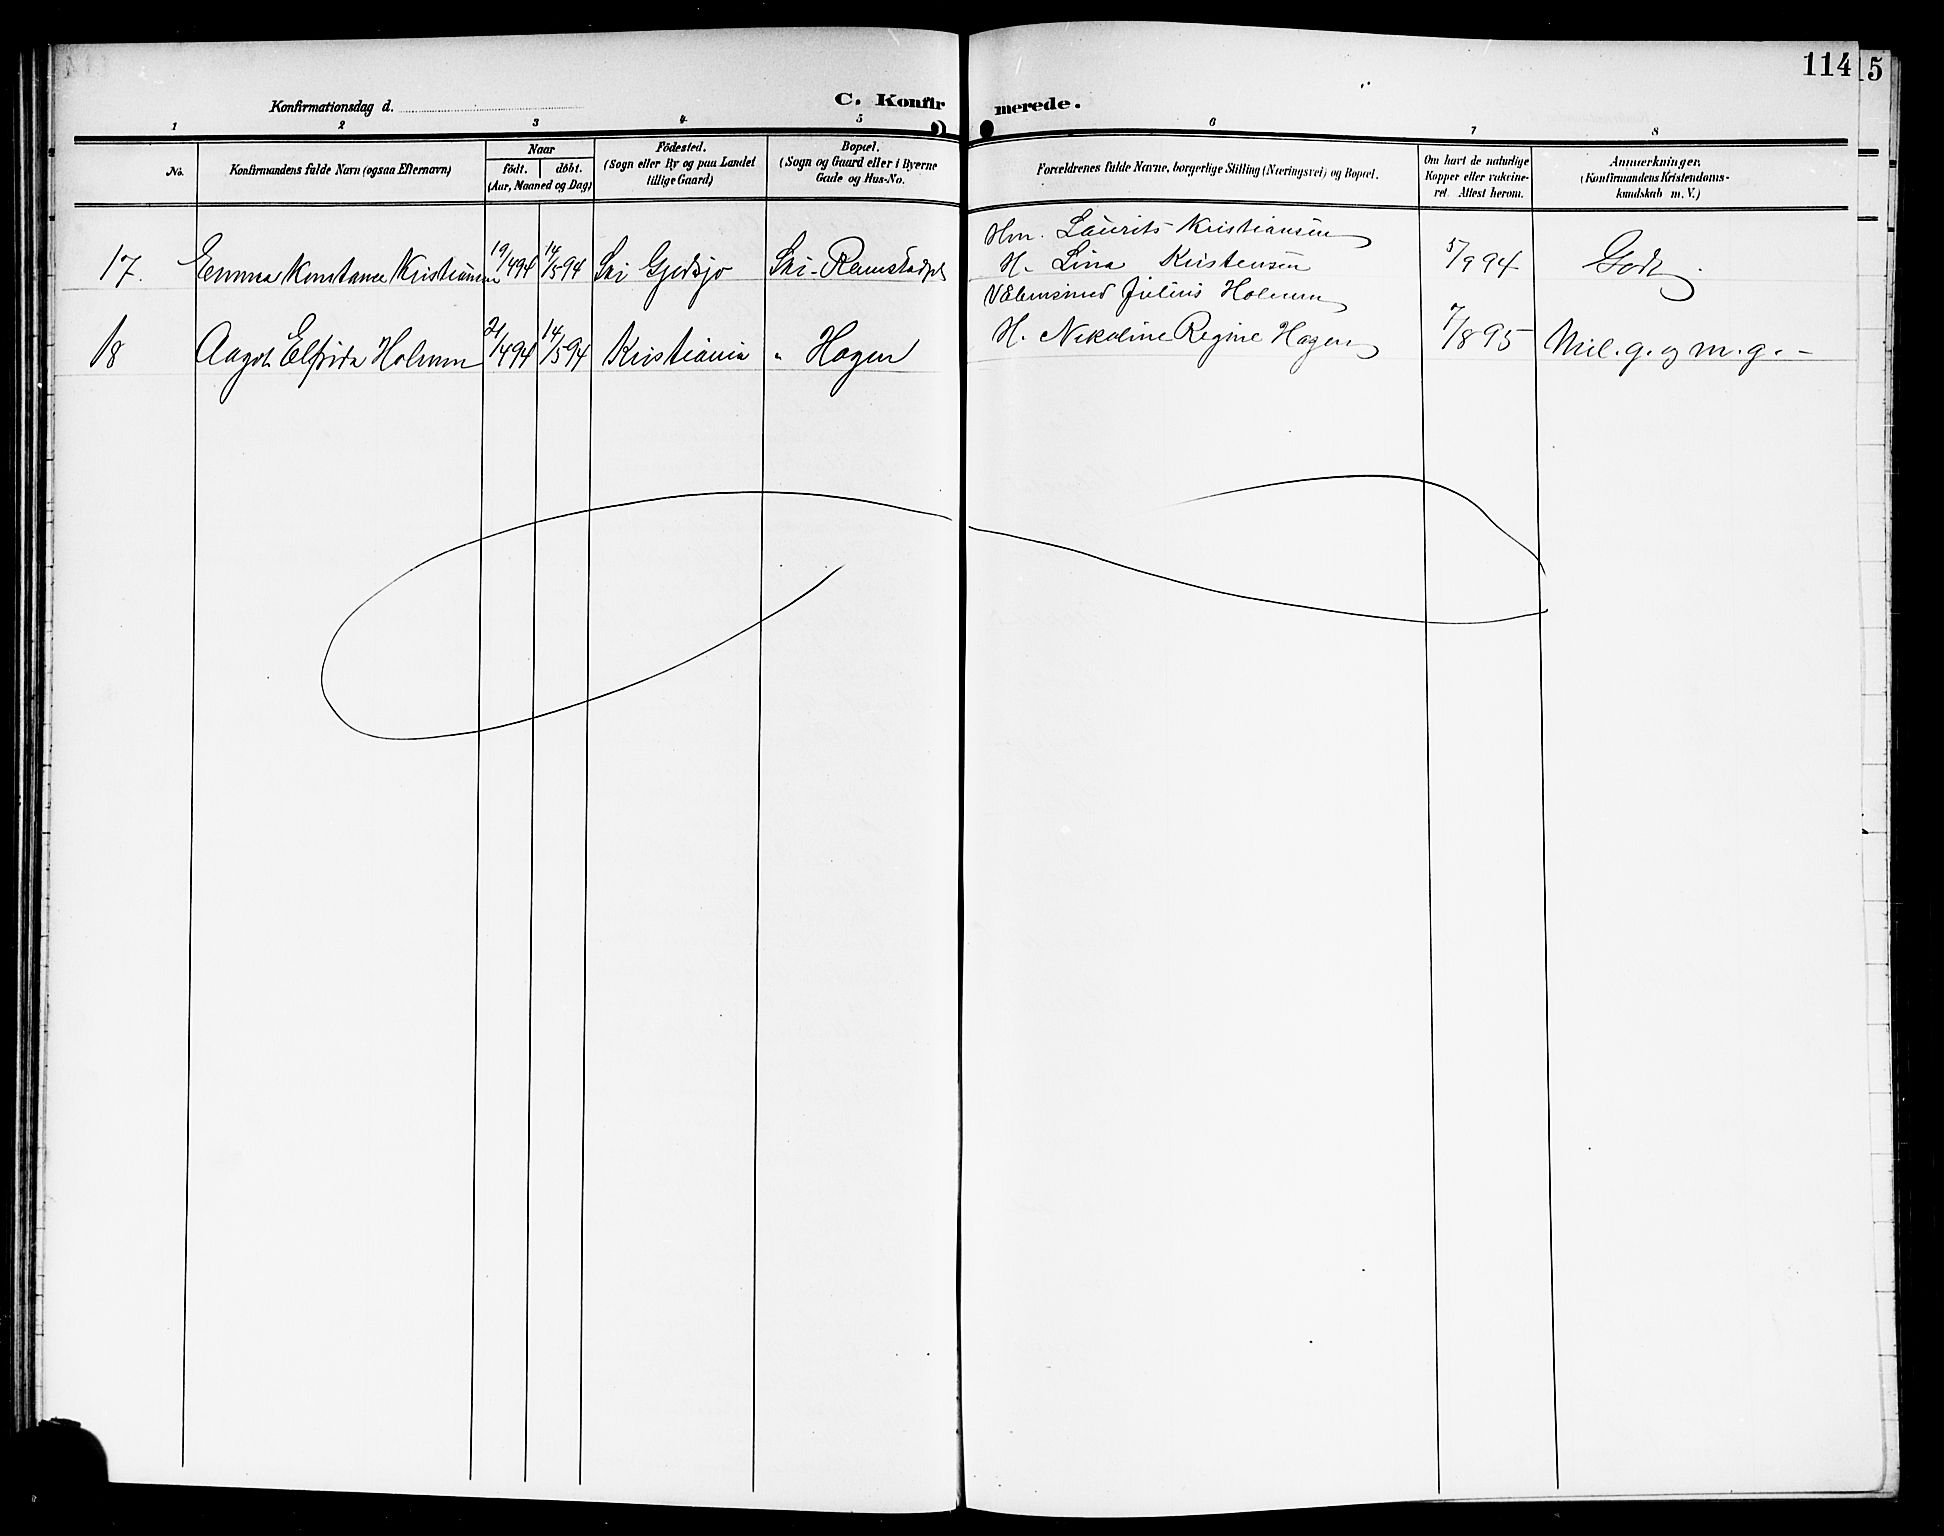 114
5
Konfirmationsdag d.
C. Konfirmerede.
1 2 3 4 5 6 7 8
No.
Konfirmandens fulde Navn (ogsaa Efternavn)
Naar
født. døbt.
(Aar, Maaned og Dag)
Fødested.
(Sogn eller By og paa Landet
tillige Gaard)
Bopæl.
(Sogn og Gaard eller i Byerne
Gade og Hus-No.
Forældrenes fulde Navne, borgerlige Stilling (Næringsvei) og Bopæl.
Om havt de naturlige
Kopper eller vakcine-
ret. Attest herom.
Anmærkninger.
(Konfirmandens Kristendoms-
kundskab m. V.)
Hm. Laurits Kristiansen
17. Emma Konstance Kristiansen 19/4 94 14/5 94 Ski Gjedsjø Ski-Ramstadpl H. Lina Kristensen 5/9 94 Godt
Julius Holmen
18 Aagot Elfrida Holmen 21/4 94 14/5 94 Kristiania " Hagen H. Nikoline Regine Hagen 7/8 95 Mel. g. og m. g. -